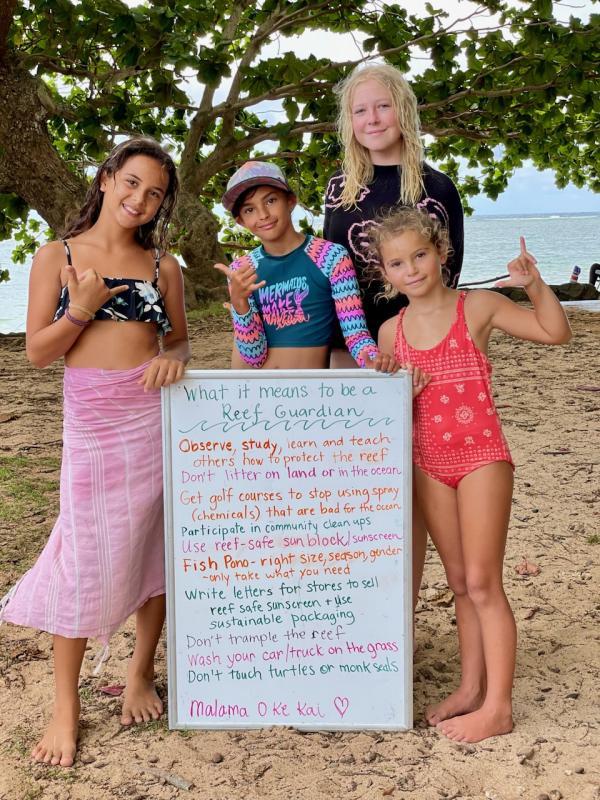 MERMAIDS
MAKE
WAVES
What it means to be a
Reef Guardian
Observe, study, learn and teach
others how to protect the reef
Don't litter on land or in the ocean
Get golf courses to stop using spray
(chemicals) that are bad for the ocean
Participate in community clean ups
Use reef-safe sunblock/sunscreen
Fish Pono - right size, season, gender
~only take what you need
Write letters for stores to sell
reef safe sunscreen + use
sustainable packaging
Don't trample the reef
Wash your car/truck on the grass
Don't touch turtles or monk seals
Malama O Ke Kai ♡